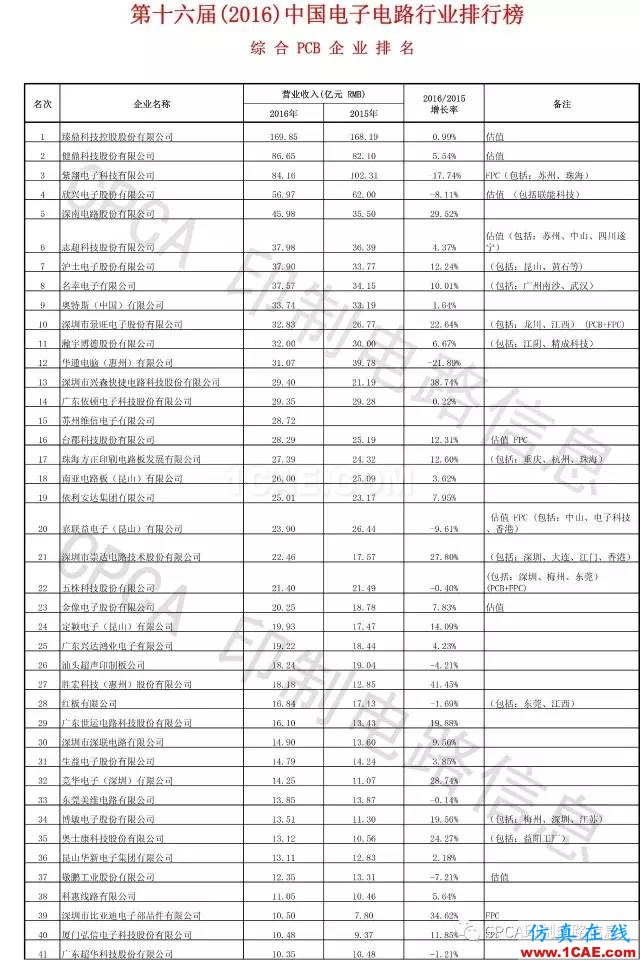 第十六届(2016)中国电子电路行业排行榜
综合 PCB 企业排名
名次 企业名称 营业收入(亿元 RMB) 2016/2015 增长率 备注
2016年 2015年
1 臻鼎科技控股股份有限公司 169.85 168.19 0.99% 估值
2 健鼎科技股份有限公司 86.65 82.10 5.54% 估值
3 紫翔电子科技有限公司 84.16 102.31 -17.74% FPC(包括：苏州、珠海)
4 欣兴电子股份有限公司 56.97 62.00 -8.11% 估值 (包括联能科技)
5 深南电路股份有限公司 45.98 35.50 29.52%
6 志超科技股份有限公司 37.98 36.39 4.37% 估值(包括：苏州、中山、四川遂宁)
7 沪士电子股份有限公司 37.90 33.77 12.24% (包括：昆山、黄石等)
8 名幸电子有限公司 37.57 34.15 10.01% (包括：广州南沙、武汉)
9 奥特斯（中国）有限公司 33.74 33.19 1.64%
10 深圳市景旺电子股份有限公司 32.83 26.77 22.64% (包括：龙川、江西) (PCB+FPC)
11 瀚宇博德股份有限公司 32.00 30.00 6.67% (包括：江阴、精成科技)
12 华通电脑（惠州）有限公司 31.07 39.78 -21.89%
13 深圳市兴森快捷电路科技股份有限公司 29.40 21.19 38.74%
14 广东依顿电子科技股份有限公司 29.35 29.28 0.22%
15 苏州维信电子有限公司 28.72
16 台郡科技股份有限公司 28.29 25.19 12.31% 估值 FPC
17 珠海方正印刷电路板发展有限公司 27.39 24.32 12.60% (包括：重庆、杭州、珠海)
18 南亚电路板（昆山）有限公司 26.00 25.09 3.62%
19 依利安达集团有限公司 25.01 23.17 7.95%
20 嘉联益电子（昆山）有限公司 23.90 26.44 -9.61% 估值 FPC (包括：中山、电子科技、香港)
21 深圳市崇达电路技术股份有限公司 22.46 17.57 27.80% (包括：深圳、大连、江门、香港)
22 五株科技股份有限公司 21.40 21.49 -0.40% (包括：深圳、梅州、东莞) (PCB+FPC)
23 金像电子股份有限公司 20.25 18.78 7.83% 估值
24 定颖电子（昆山）有限公司 19.93 17.47 14.09%
25 广东兴达鸿业电子有限公司 19.22 18.44 4.23%
26 汕头超声印制板公司 18.24 19.04 -4.21%
27 胜宏科技（惠州）股份有限公司 18.18 12.85 41.45%
28 红板有限公司 16.84 17.13 -1.69% (包括：东莞、江西)
29 广东世运电路科技股份有限公司 16.10 13.43 19.88%
30 深圳市深联电路有限公司 14.90 13.60 9.56%
31 生益电子股份有限公司 14.79 14.24 3.85%
32 竞华电子（深圳）有限公司 14.25 11.07 28.74%
33 东莞美维电路有限公司 13.85 13.87 -0.14%
34 博敏电子股份有限公司 13.51 11.30 19.56% (包括：梅州、深圳、江苏)
35 奥士康科技股份有限公司 13.12 10.56 24.27% (包括：益阳工厂)
36 昆山华新电子集团有限公司 13.11 12.83 2.18%
37 敬鹏工业股份有限公司 12.35 13.31 -7.21% 估值
38 科惠线路有限公司 11.05 10.46 5.64%
39 深圳市比亚迪电子部品件有限公司 10.50 7.80 34.62% FPC
40 厦门弘信电子科技股份有限公司 10.48 9.37 11.85% FPC
41 广东超华科技股份有限公司 10.35 10.48 -1.21%
CPCA 印制电路信息
CPCA 印制电路信息
1CAE.COM
CPCA印制电路信息
仿真在线
www.1CAE.com